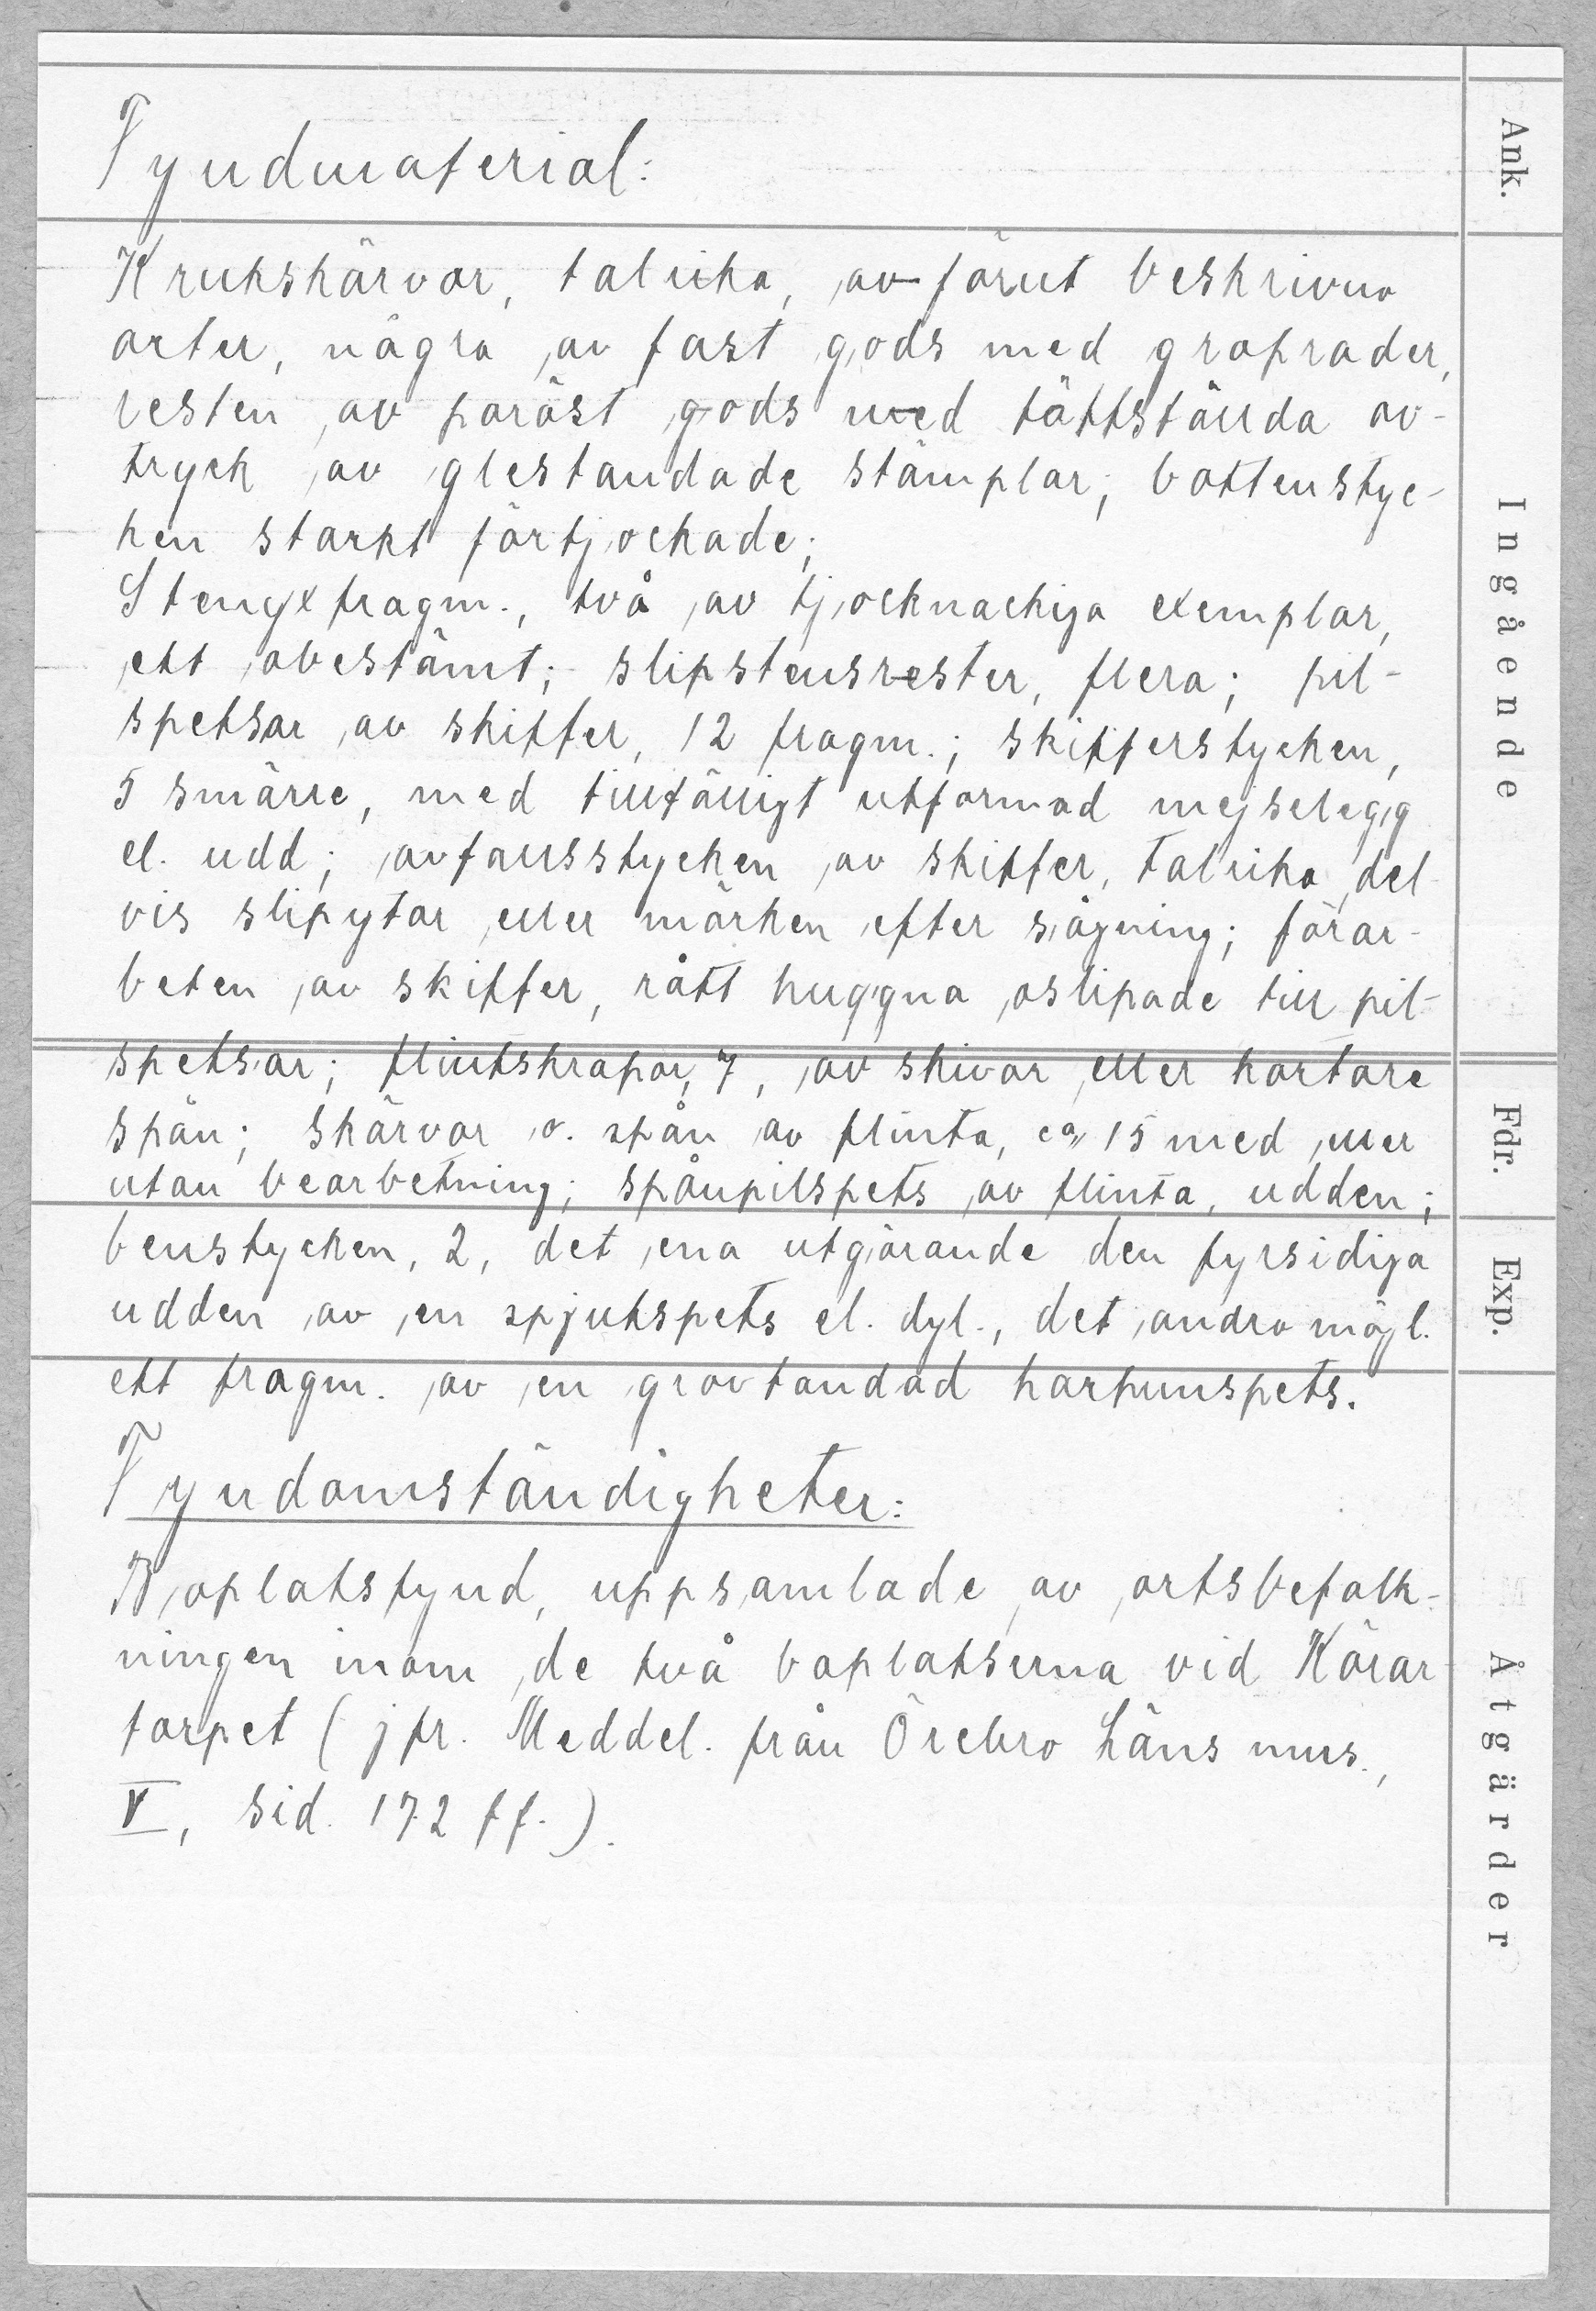 Fyndmaterial:
Krukskärvor, talrika, av förut beskrivna
arter, några av fast gods med groprader,
resten av poröst gods med tättställda av-
tryck av glestandade stämplar; bottenstyc-
ken starkt förtjockade;
Stenyxfragm., två av tjocknackiga exemplar,
ett obestämt; slipstensrester, flera; pil-
spetsar av skiffer, 12 fragm.; skifferstycken,
5 smärre, med tillfälligt utformad mejselegg
el. udd; avfallsstycken av skiffer, talrika del-
vis slipytor eller märken efter sågning; förar-
beten av skiffer, rått huggna oslipade till pil-
spetsar; flintskrapor, 7, av skivor eller kortare
spån; skärvor o. spån av flinta, ca 15 med eller
utan bearbetning; spånpilspets av flinta, udden;
benstycken, 2, det ena utgörande den fyrsidiga
udden av en spjutspets el. dyl., det andra möjl.
ett fragm. av en grovtandad harpunspets.
Fyndomständigheter:
Boplatsfynd, uppsamlade av ortsbefolk-
ningen inom de två boplatserna vid Körar
torpet (jfr. Meddel. från Örebro Läns mus.,
V, sid. 172 ff.).
Ank.
Ingående
Fdr.
Exp.
Åtgärder